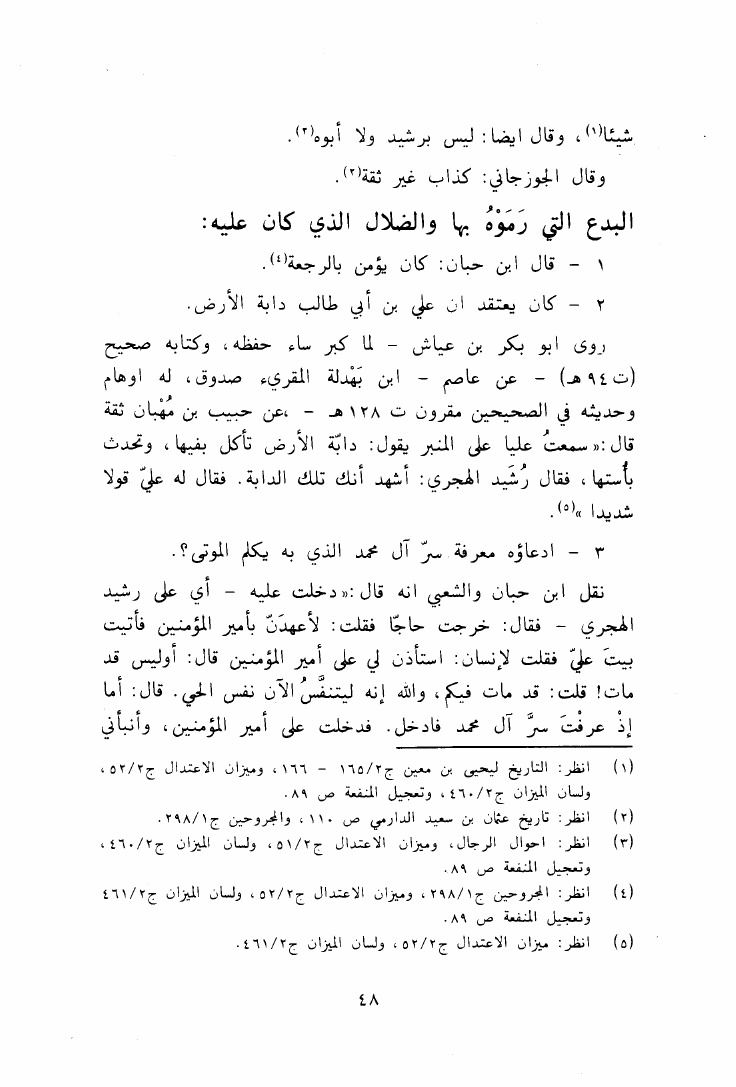 شيئا(١)، وقال ايضا: ليس برشيد ولا أبوه(٢).
وقال الجوزجاني: كذاب غير ثقة(٣).
البدع التي رَمَوْهُ بها والضلال الذي كان عليه:
١ - قال ابن حبان: كان يؤمن بالرجعة(٤).
٢ - كان يعتقد ان علي بن أبي طالب دابة الأرض.
روى ابو بكر بن عياش - لما كبر ساء حفظه، وكتابه صحيح
(ت ٩٤ هـ) - عن عاصم - ابن بَهْدلة المقريء صدوق، له اوهام
وحديثه في الصحيحين مقرون ت ١٢٨ هـ - ،عن حبيب بن مُهْبان ثقة
قال: «سمعتُ عليا على المنبر يقول: دابّة الأرض تأكل بفيها، وتحدث
بأستها، فقال رُشَيد الهجري: أشهد أنك تلك الدابة. فقال له عليّ قولا
شديدا »(٥).
٣ - ادعاؤه معرفة سرّ آل محمد الذي به يكلم الموتى؟.
نقل ابن حبان والشعبي انه قال: «دخلت عليه - أي على رشيد
الهجري - فقال: خرجت حاجّا فقلت: لأعهدَنّ بأمير المؤمنين فأتيت
بيتَ عليّ فقلت لإنسان: استأذن لي على أمير المؤمنين قال: أوليس قد
مات! قلت: قد مات فيكم، والله إنه ليتنفَّسُ الآن نفس الحي. قال: أما
إذْ عرفْتَ سرَّ آل محمد فادخل. فدخلت على أمير المؤمنين، وأنبأني
(١) انظر: التاريخ ليحيى بن معين ج٢/١٦٥ - ١٦٦، وميزان الاعتدال ج٢/٥٢،
ولسان الميزان ج٢/٤٦٠، وتعجيل المنفعة ص ٨٩.
(٢) انظر: تاريخ عثمان بن سعيد الدارمي ص ١١٠، والمجروحين ج١/٢٩٨.
(٣) انظر: احوال الرجال، وميزان الاعتدال ج٢/٥١، ولسان الميزان ج٢/٤٦٠،
وتعجيل المنفعة ص ٨٩.
(٤) انظر: المجروحين ج١/٢٩٨، وميزان الاعتدال ج٢/٥٢، ولسان الميزان ج٢/٤٦١
وتعجيل المنفعة ص ٨٩.
(٥) انظر: ميزان الاعتدال ج٢/٥٢، ولسان الميزان ج٢/٤٦١.
٤٨